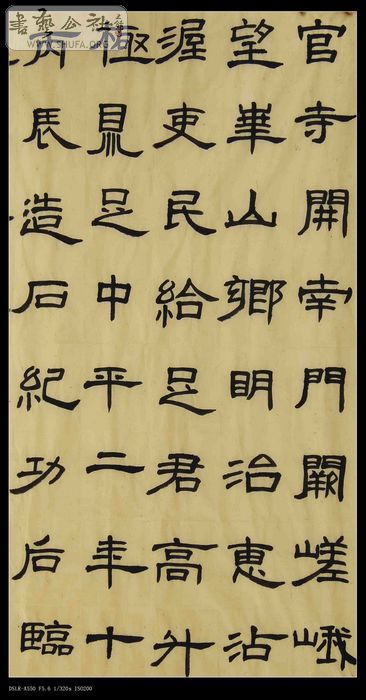 書藝公社
WWW.SHUFA.ORG
官寺開南門闕嵯峨
望華山鄉明治惠沾
渥吏民給足君高升
極鼎足中平二年十
丙辰造石紀功后臨
DSLR-A550 F5.6 1/320s ISO200